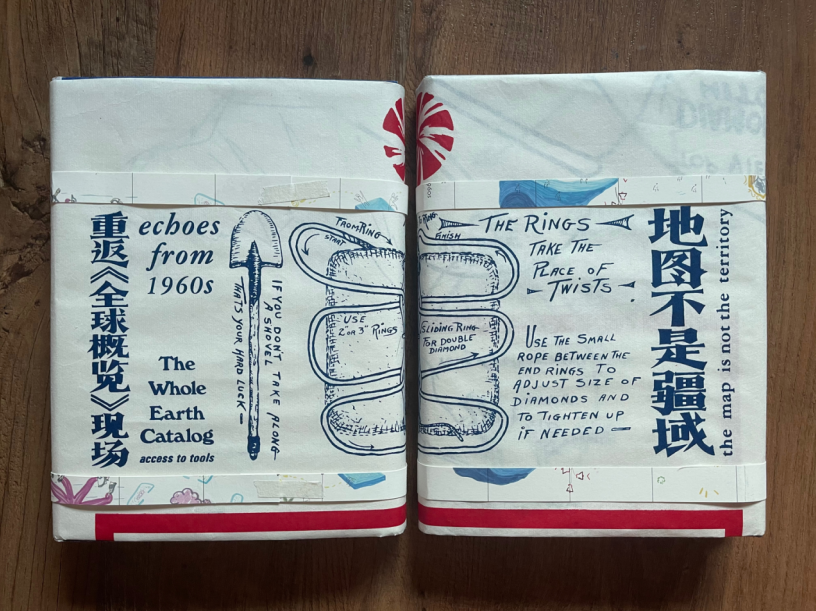 重返《全球概览》现场
echoes
from
1960s
The
Whole
Earth
Catalog
access to tools
IF YOU DON'T TAKE ALONG
A SHOVEL
THATS YOUR HARD LUCK —
FROM RING
START
USE
2" OR 3" RINGS
FINISH
SLIDING RING
FOR DOUBLE
DIAMOND
THE RINGS
TAKE THE
PLACE OF
TWISTS
USE THE SMALL
ROPE BETWEEN THE
END RINGS TO
ADJUST SIZE OF
DIAMONDS AND
TO TIGHTEN UP
IF NEEDED —
地图不是疆域
the map is not the territory